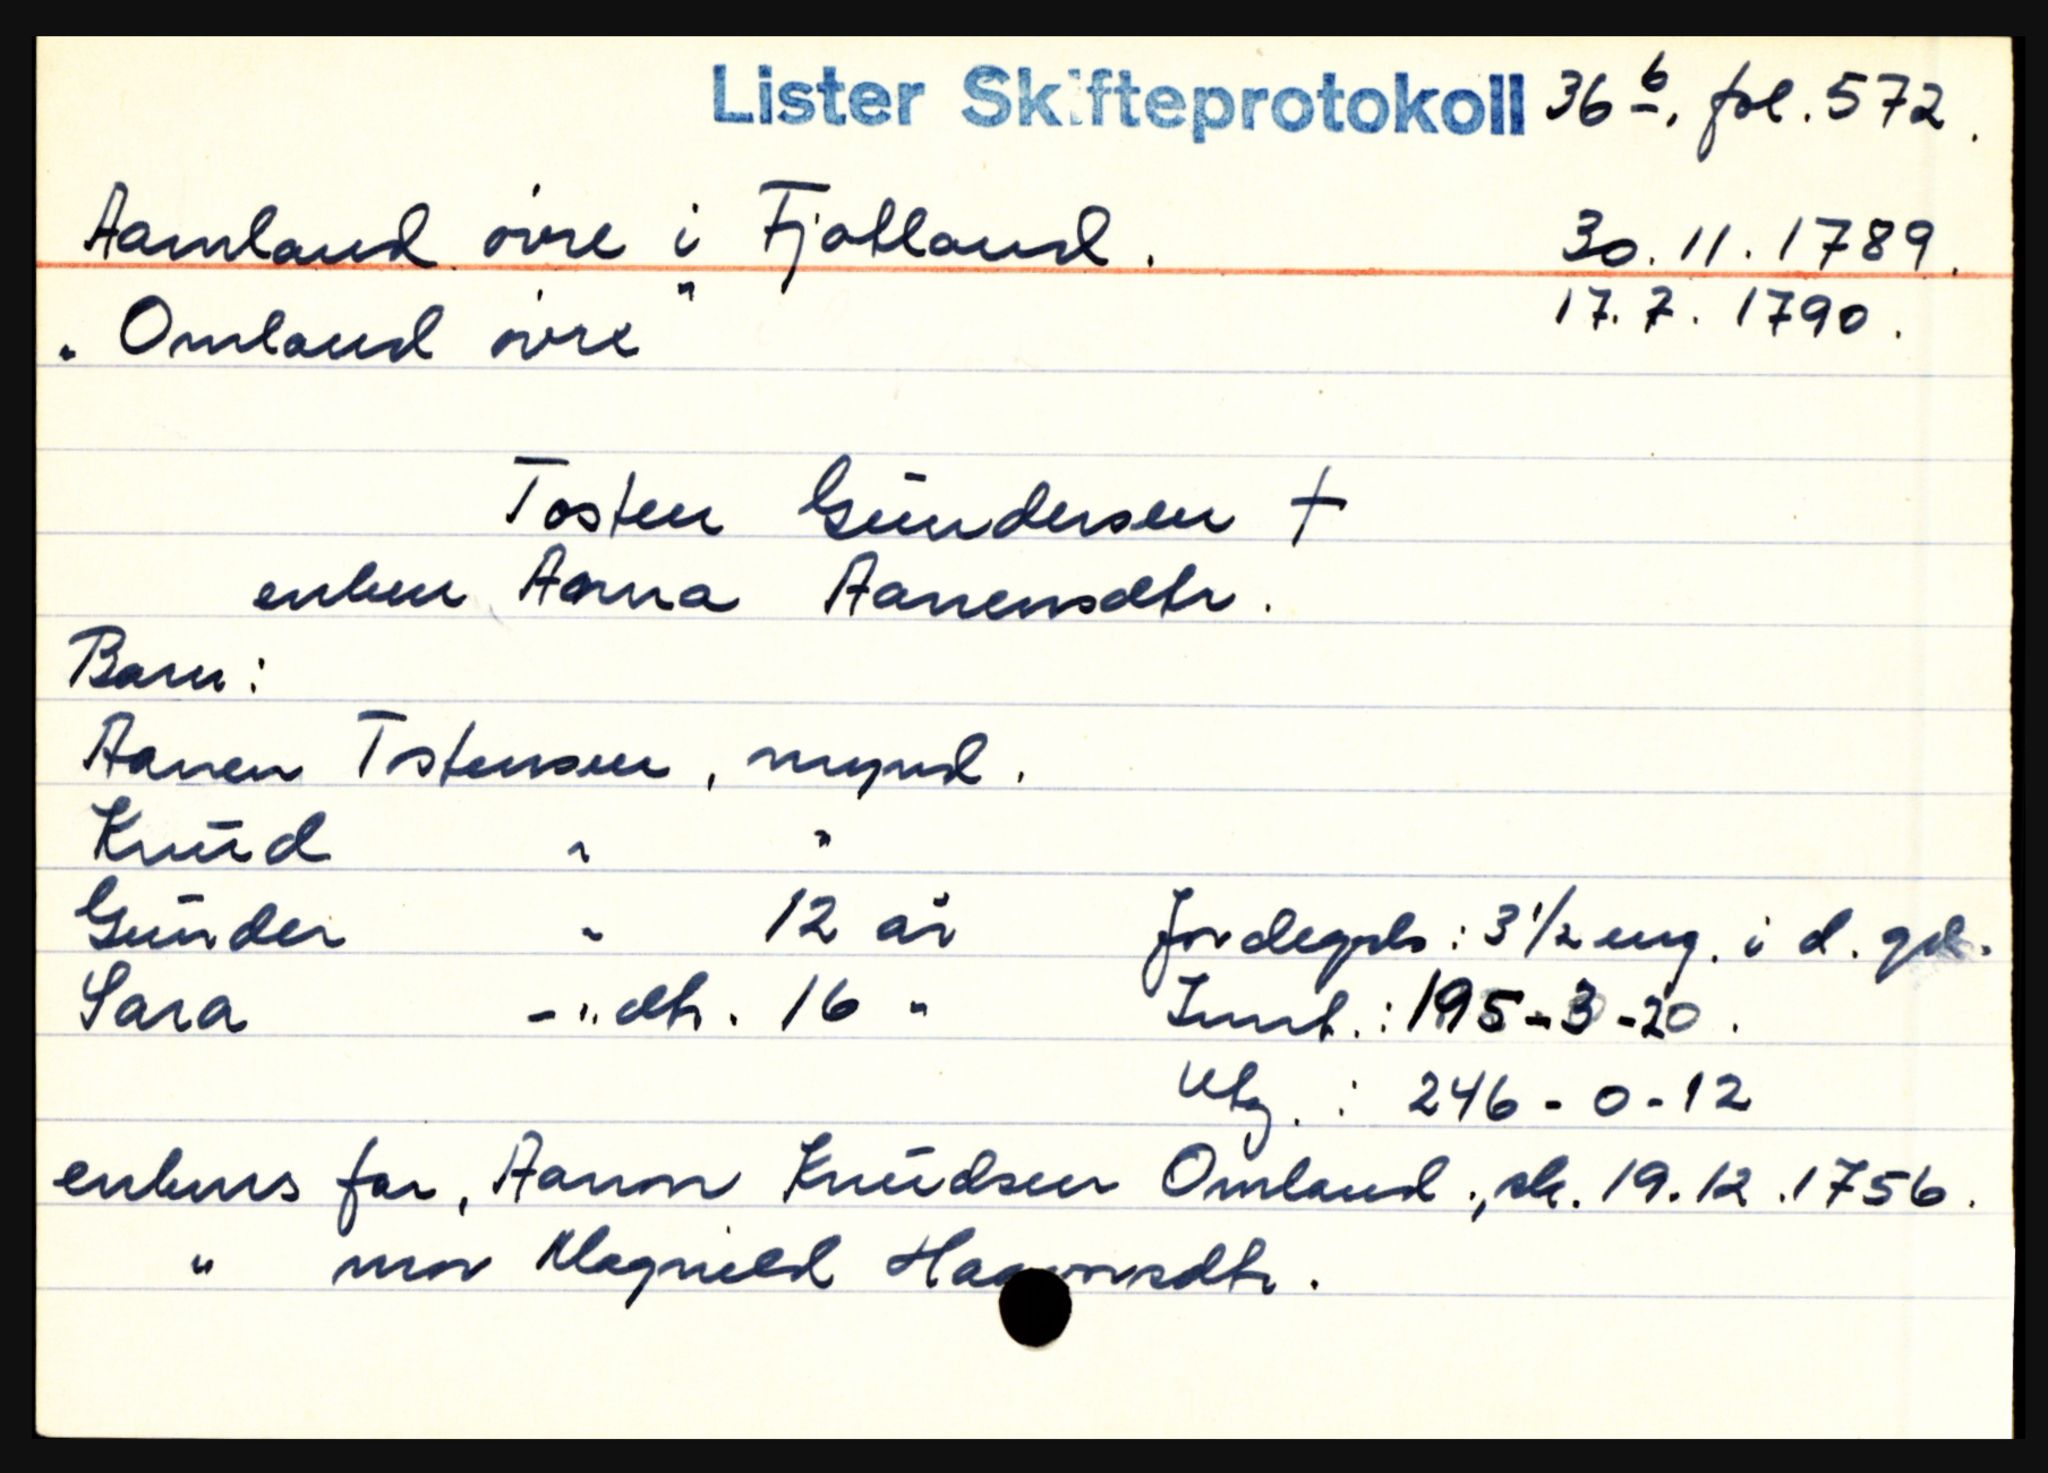 Lister Skifteprotokoll 36 b, fol. 572.
Aamland övre i Fjotland. 30.11.1789.
"Omland övre" 17.7.1790.
Tosten Gundersen †
enken Anna Aanensdtr.
Barn:
Aanen Tostensen, mynd.
Knud " "
Gunder " 12 år Jordegods: 3 1/2 eng. i d. gd.
Sara -"- dtr. 16 " Innt.: 195-3-20.
Utg.: 246-0-12
enkens far, Aanon Knudsen Omland, sk. 19.12.1756.
" mor Magnild Haavorsdtr.